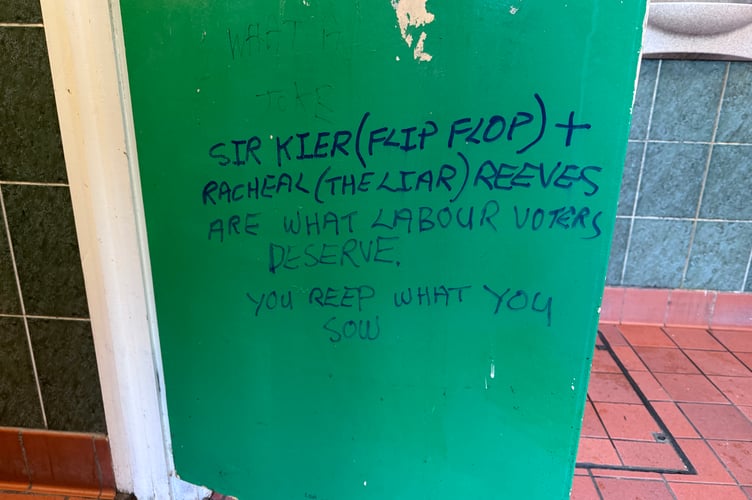 WHAT A
SIR KIER (FLIP FLOP) +
RACHEAL (THE LIAR) REEVES
ARE WHAT LABOUR VOTERS
DESERVE.
YOU REEP WHAT YOU
SOW